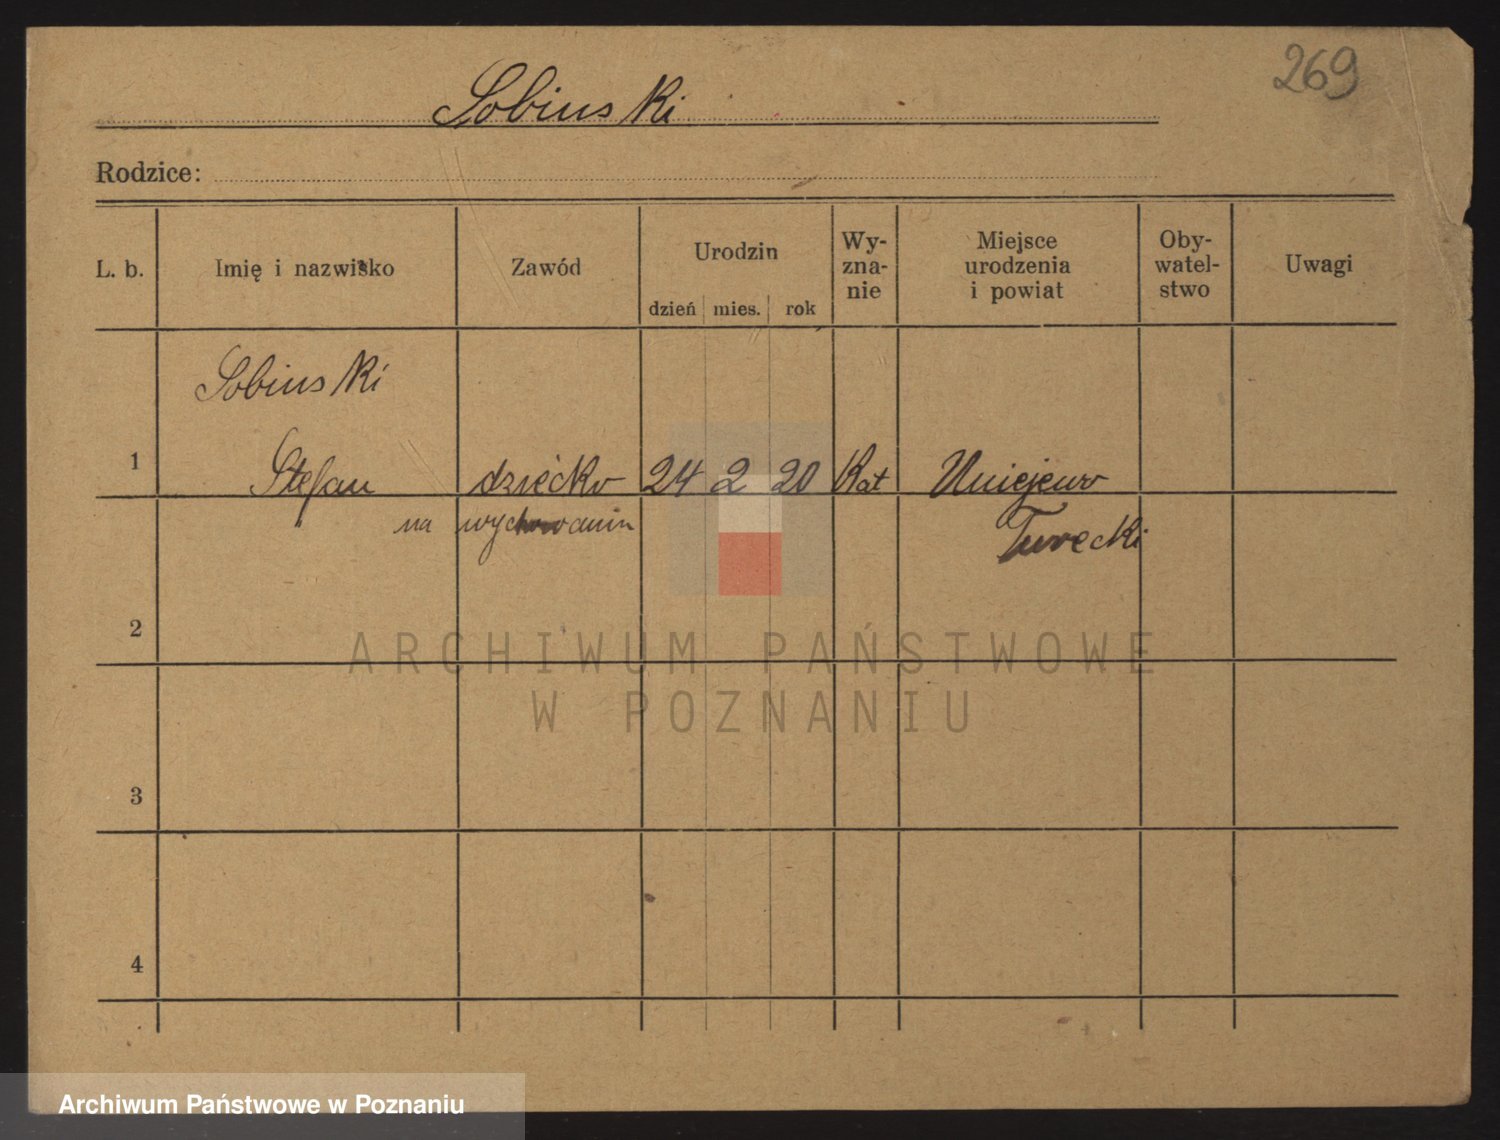 269
Sobinski
Rodzice:
L. b. Imię i nazwisko Zawód Urodzin dzień mies. rok Wy-zna-nie Miejsce urodzenia i powiat Oby-watel-stwo Uwagi
Sobinski
1 Stefan dziecko 24 2 20 Kat Uniejewo
na wychowanin Turecki
2
ARCHIWUM PAŃSTWOWE
W POZNANIU
3
4
Archiwum Państwowe w Poznaniu